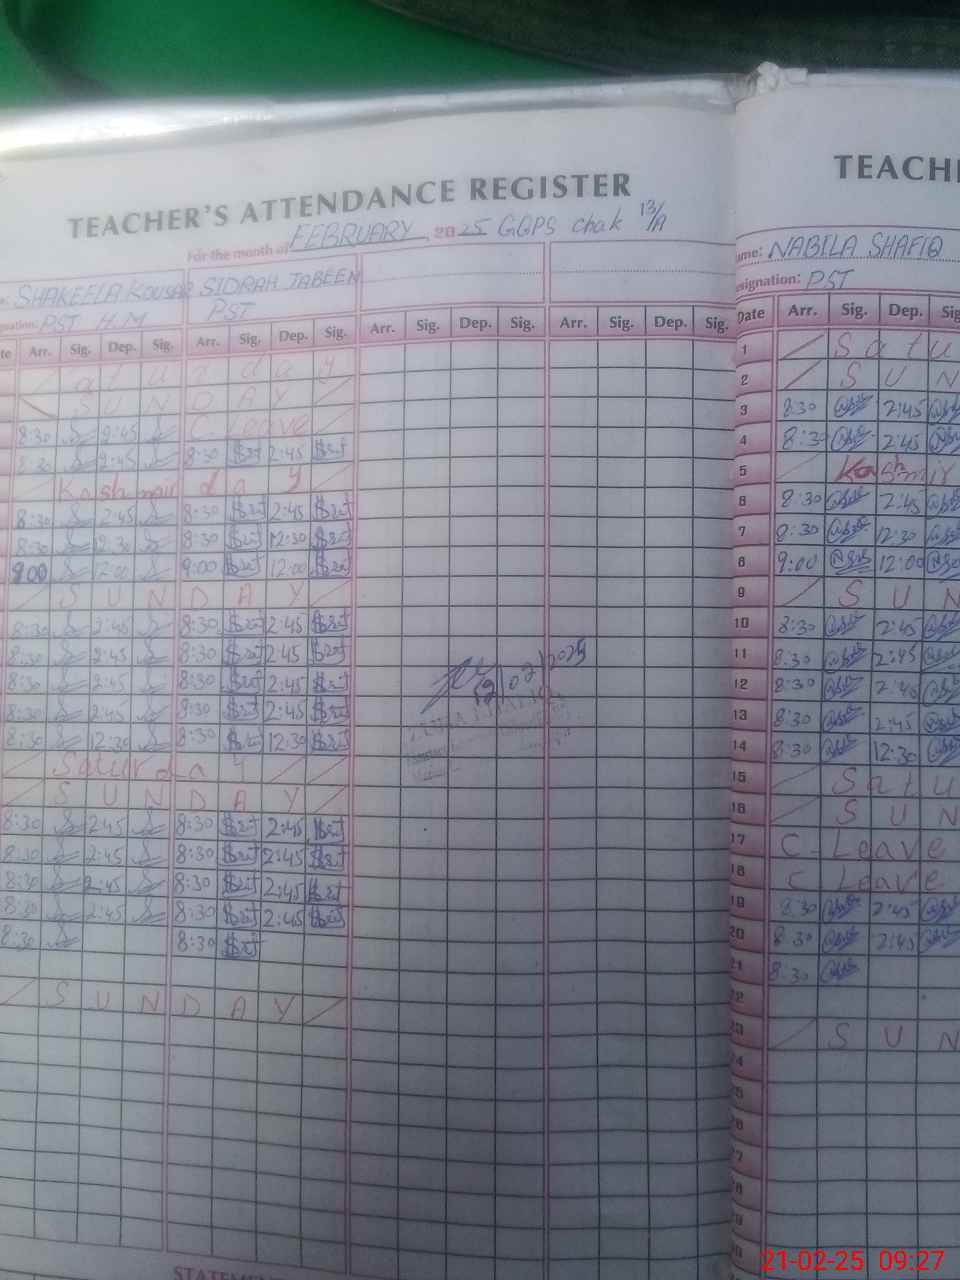 TEACHER'S ATTENDANCE REGISTER
For the month of FEBRUARY 2025 GGPS chak 13/A
SHAKEELA KOUSAR SIDRAH JABEEN
PST H.M PST
te Arr. Sig. Dep. Sig. Arr. Sig. Dep. Sig. Arr. Sig. Dep. Sig. Arr. Sig. Dep. Sig.
a t u r d a y
S U N D A Y
8:30 2:45 C. Leave
8:30 2:45 8:30 2:45
Kashmir d a y
8:30 2:45 8:30 2:45
8:30 12:30 8:30 12:30
9:00 12:00 9:00 12:00
S U N D A Y
8:30 2:45 8:30 2:45
8:30 2:45 8:30 2:45
8:30 2:45 8:30 2:45
8:30 2:45 8:30 2:45
8:30 12:30 8:30 12:30
Saturda y
S U N D A Y
8:30 2:45 8:30 2:45
8:30 2:45 8:30 2:45
8:30 2:45 8:30 2:45
8:30 2:45 8:30 2:45
8:30 8:30
S U N D A Y
02/2025
STATEMEN
TEACHE
ame: NABILA SHAFIQ
esignation: PST
Date Arr. Sig. Dep. Sig
1 S a t u
2 S U N
3 8:30 2:45
4 8:30 2:45
5 Kashmir
6 8:30 2:45
7 8:30 12:30
8 9:00 12:00
9 S U N
10 8:30 2:45
11 8:30 2:45
12 8:30 2:45
13 8:30 2:45
14 8:30 12:30
15 S a t u
16 S U N
17 C. Leave
18 C Leave
19 8:30 2:45
20 8:30 2:45
21 8:30
22
23 S U N
24
25
26
27
28
29
30
21-02-25 09:27